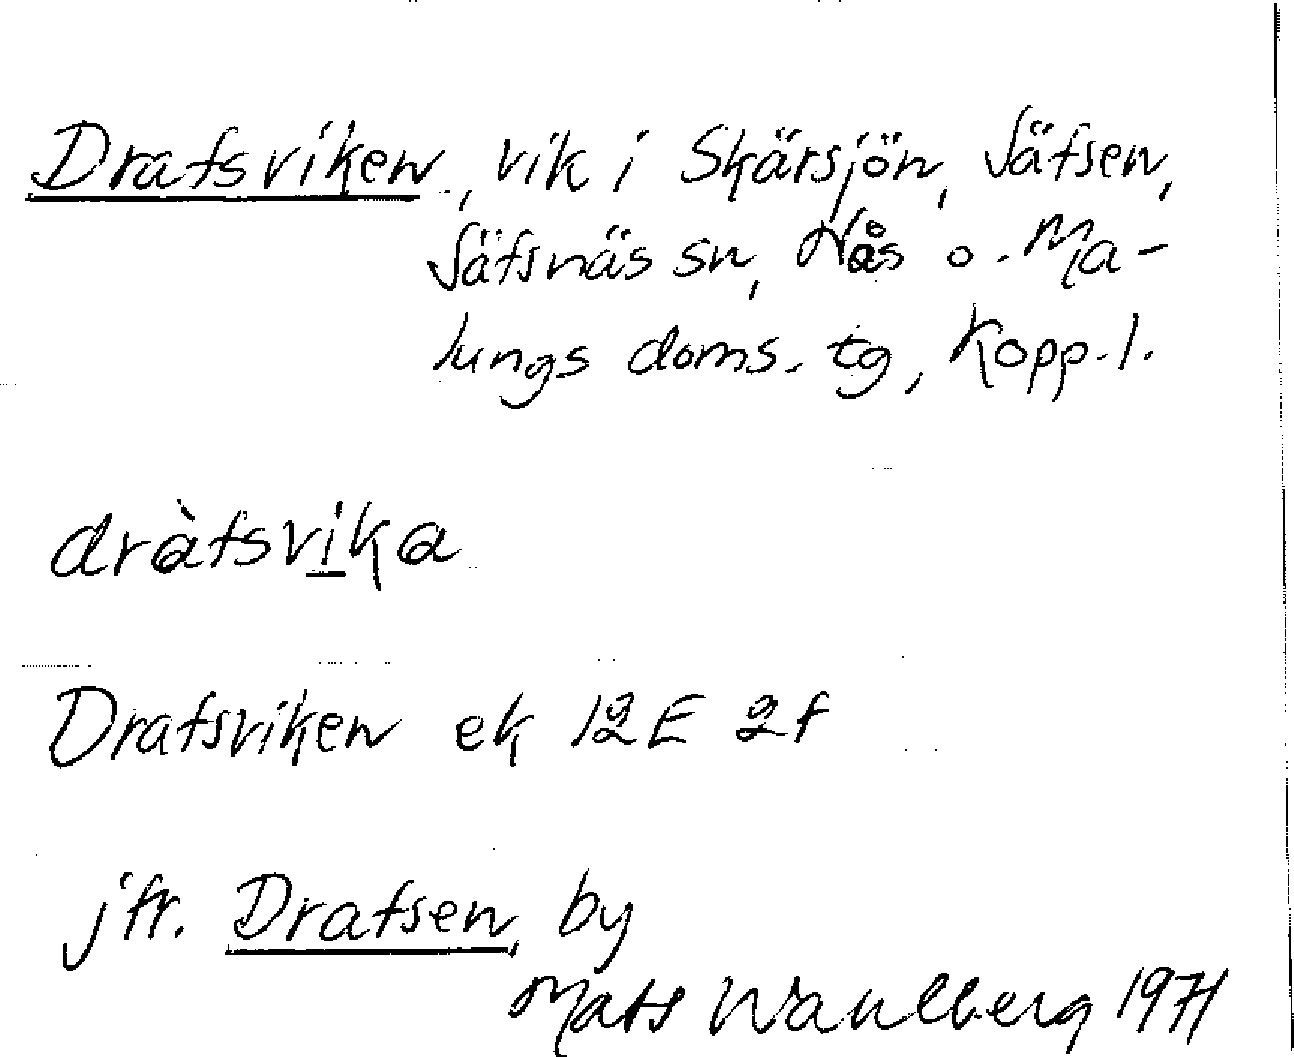 Drafsviken, vik i Skärsjön, Säfsen,
Säfsnäs sn, Nås o. Ma-
lungs doms. tg, Kopp. l.
dràfsvika
Drafsviken ek 12E 2f
jfr. Drafsen, by
Mats Wahlberg 1971